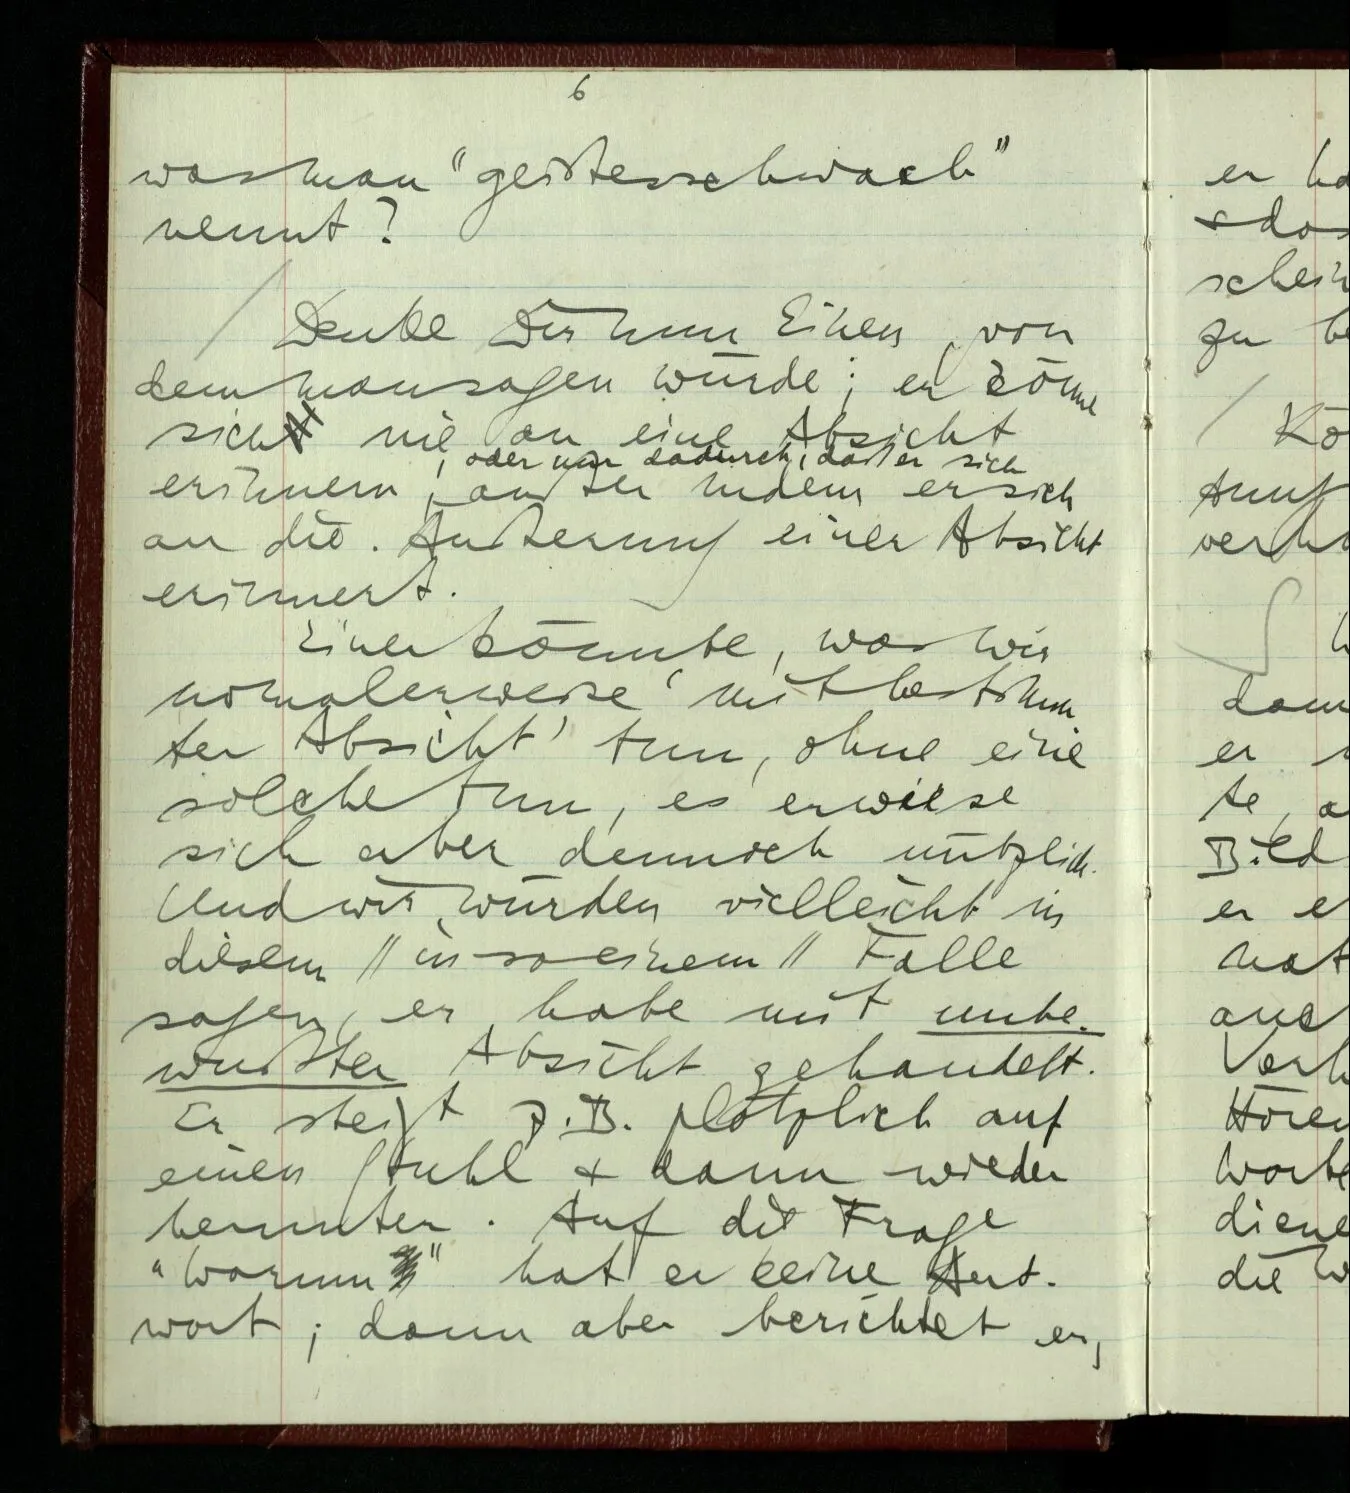 6
was man "geistesschwach"
nennt?
/ Denke Dir nun Einen, von
dem man sagen würde: er könne
sich nie an eine Absicht
, oder nur dadurch, daß er sich
erinnern, außer indem er sich
an die Äußerung einer Absicht
erinnert.
Einer könnte, was wir
normalerweise 'mit bestimm
ter Absicht' tun, ohne eine
solche tun, es erwiese
sich aber dennoch nützlich.
Und wir würden vielleicht in
diesem // in so einem // Falle
sagen, er habe mit unbe-
wußter Absicht gehandelt.
Er steigt z.B. plötzlich auf
einen Stuhl & dann wieder
herunter. Auf die Frage
"Warum" hat er keine Ant-
wort; dann aber berichtet er,
er
zu
/ Kö
dam
er
te,
Bild
er
hat
Hören
Worte
diene
die W